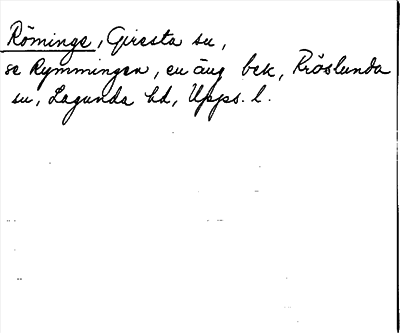 Röminge, Giresta sn,
se Rymmingen, en äng bek, Kröslunda
sn, Lagunda hd, Upps. l.